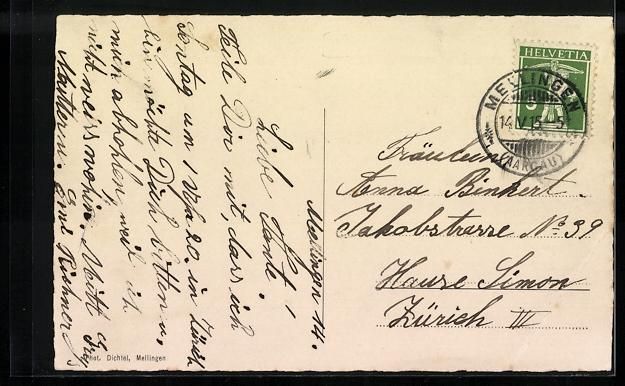 Mellingen 14.
Liebe Tante!
Teile Dir mit, dass ich
Sontag um 1 Uhr 20. in Zürich
bin möchte Dich bitten u.
mich abholen, weil ich
nicht weiss wohin. Mit Gr
Mutter u. Emil Richner
Phot. Dichtel, Mellingen
HELVETIA
5
MELLINGEN
14.V.15.-5
(AARGAU)
Fräulein
Anna Binkert.
Jakobstrasse No 39
Hause Simon
Zürich III